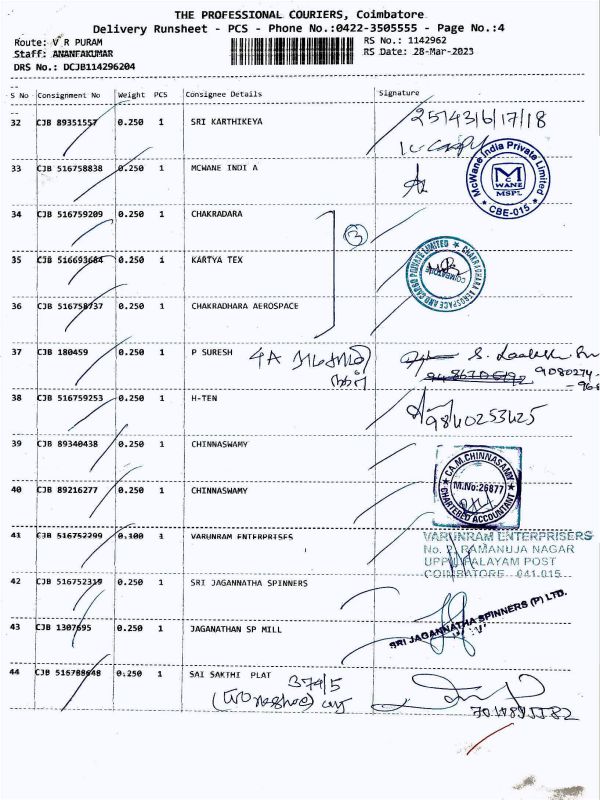 THE PROFESSIONAL COURIERS, Coimbatore
Delivery Runsheet - PCS - Phone No.:0422-3505555 - Page No.:4
Route: V R PURAM
RS No.: 1142962
Staff: ANANFAKUMAR
RS Date: 28-Mar-2023
DRS No.: DCJB114296204
S No Consignment No Weight PCS Consignee Details Signature
32 CJB 89351557 0.250 1 SRI KARTHIKEYA
33 CJB 516758838 0.250 1 MCWANE INDI A
McWane India Private Limited
MC WANE
MSPL
CBE-015
34 CJB 516759209 0.250 1 CHAKRADARA
3
35 CJB 516693684 0.250 1 KARTYA TEX
CHAKRADHARA AEROSPACE AND CARGO PRIVATE LIMITED
COIMBATORE
36 CJB 516758737 0.250 1 CHAKRADHARA AEROSPACE
37 CJB 180459 0.250 1 P SURESH
4A
38 CJB 516759253 0.250 1 H-TEN
39 CJB 89340438 0.250 1 CHINNASWAMY
40 CJB 89216277 0.250 1 CHINNASWAMY
CA.M.CHINNASAMY
M.No:26877
CHARTERED ACCOUNTANT
41 CJB 516752299 0.100 1 VARUNRAM ENTERPRISES
VARUNRAM ENTERPRISERS
RAMANUJA NAGAR
UPPILIPALAYAM POST
COIMBATORE 641 015
42 CJB 516752319 0.250 1 SRI JAGANNATHA SPINNERS
43 CJB 1307695 0.250 1 JAGANATHAN SP MILL
SRI JAGANNATHA SPINNERS (P) LTD.
44 CJB 516788648 0.250 1 SAI SAKTHI PLAT
374/5